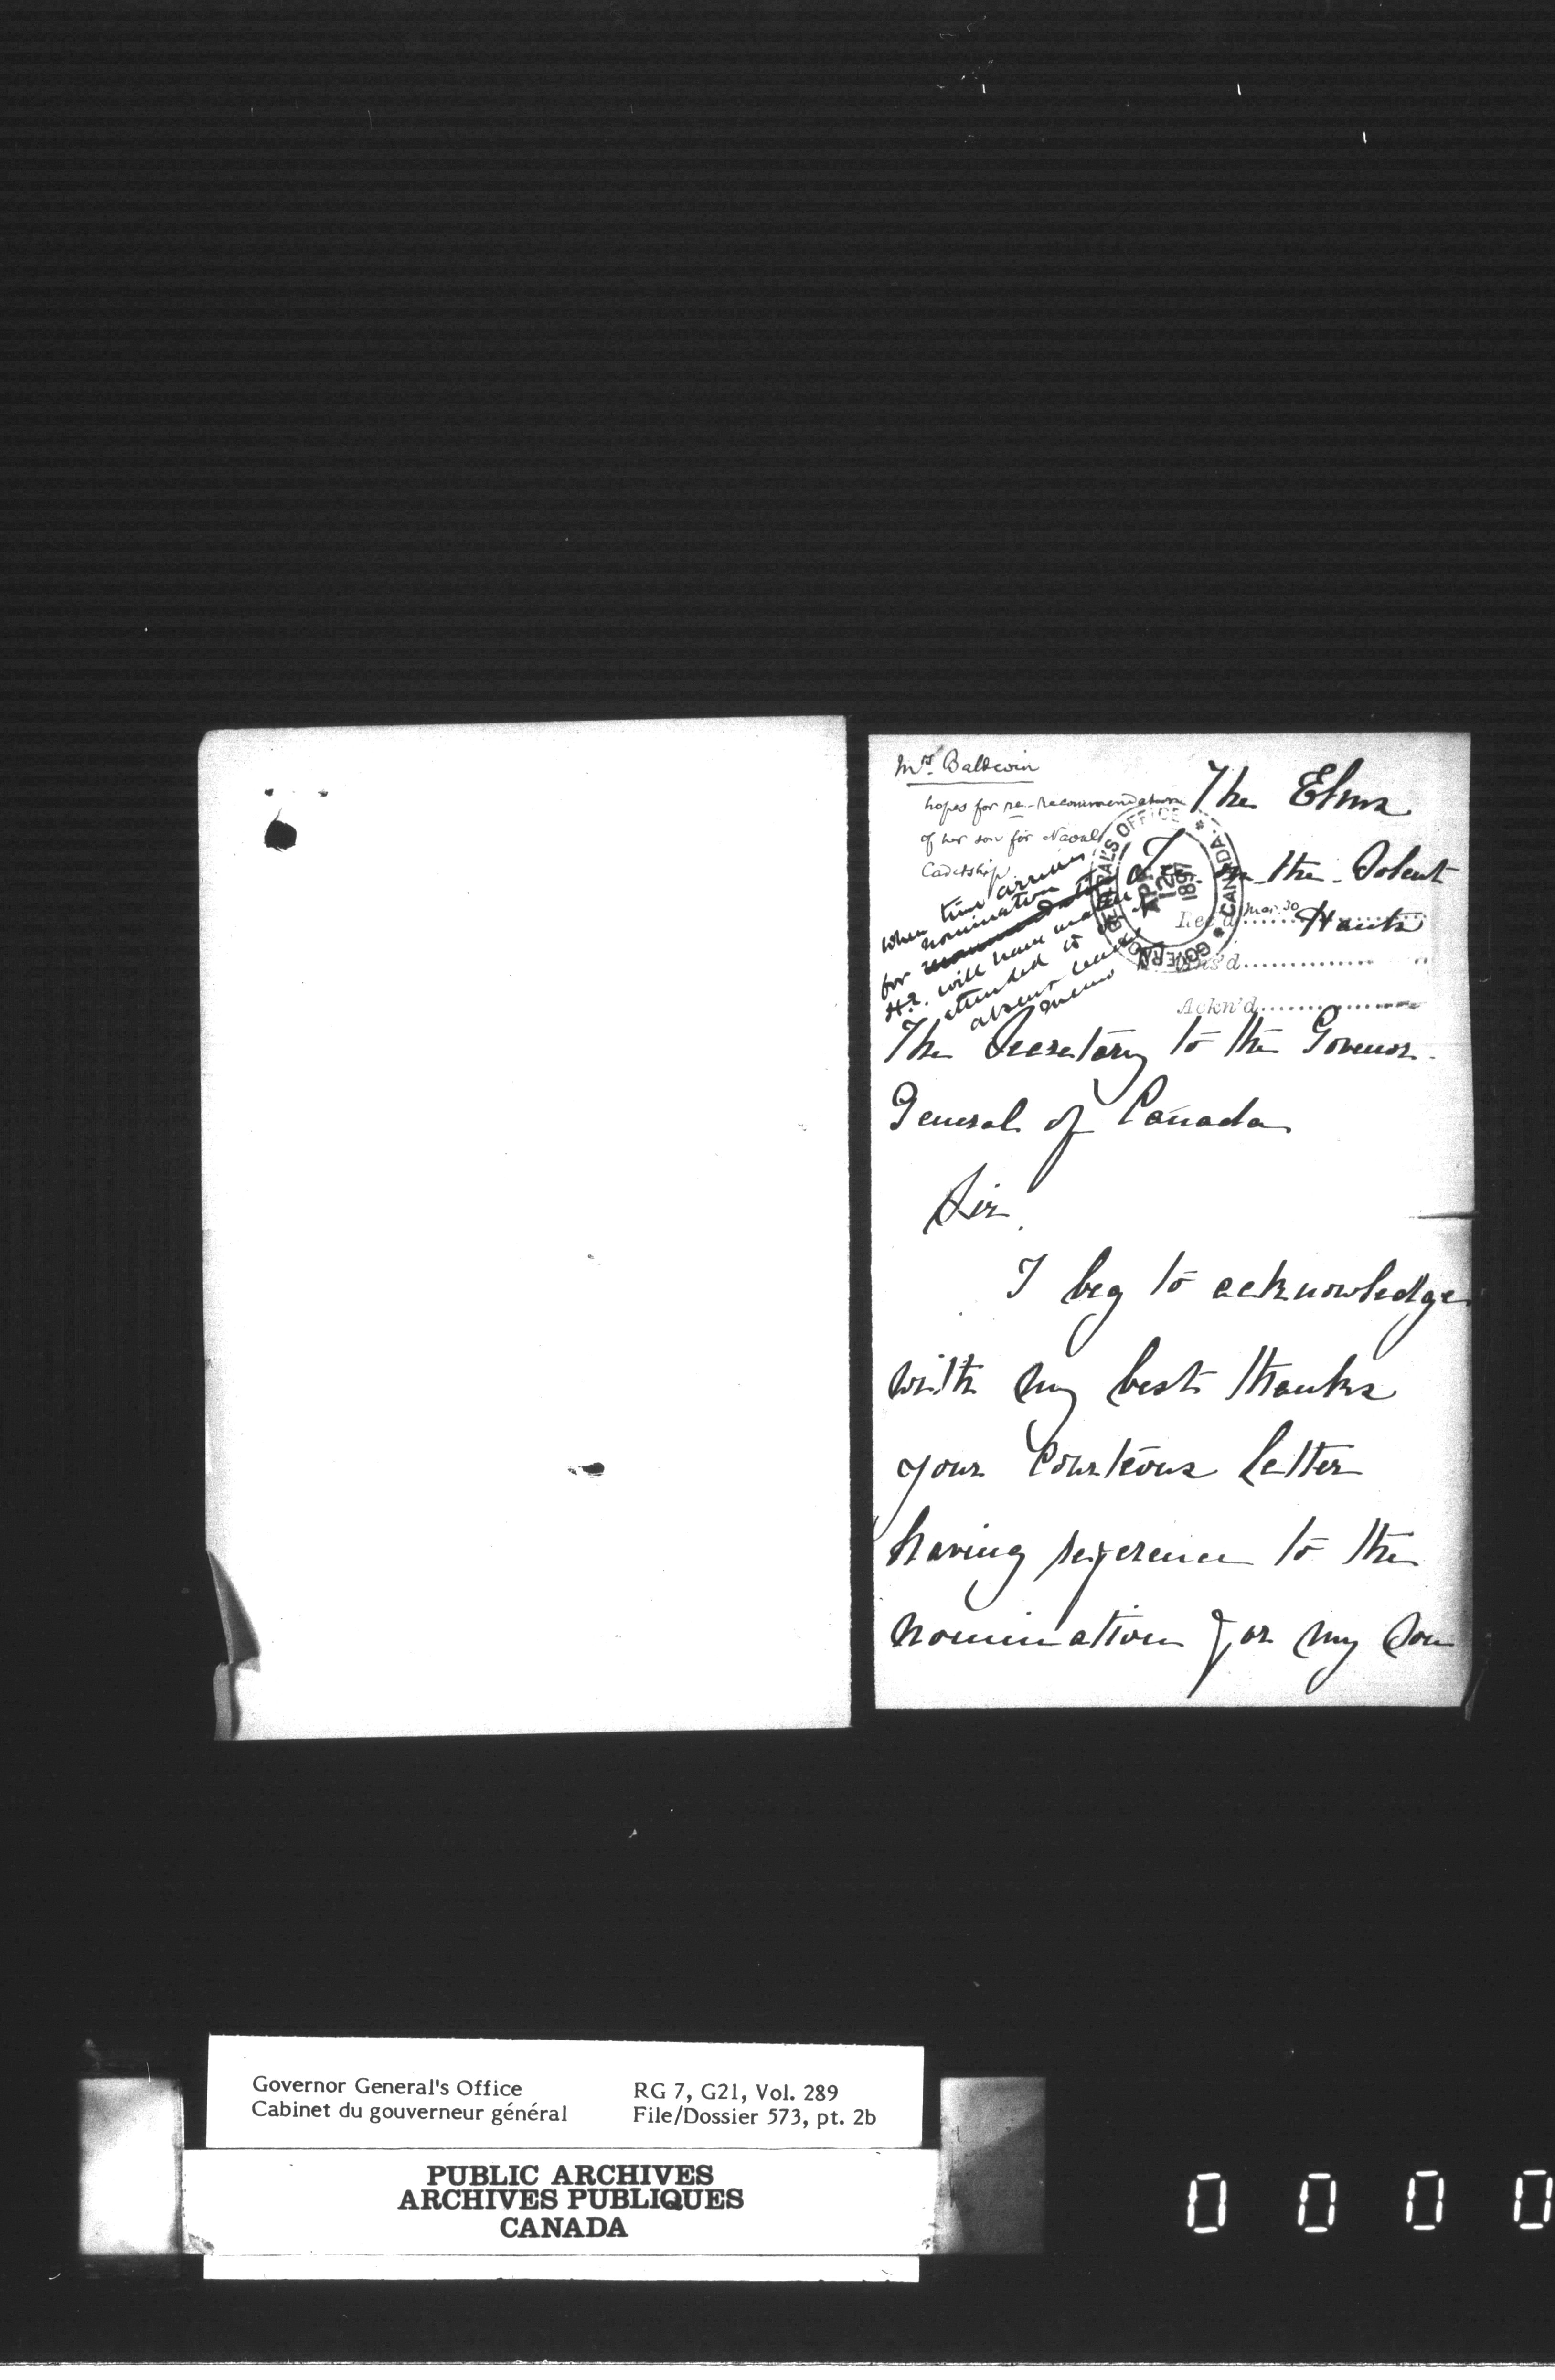 Mrs. Baldwin
hopes for re-recommendation
of her son for Naval
Cadetship
When time arrives
for nomination
H.E. will have
attended to
absent
The Elms
on the Solent
Hants
GOVERNOR GENERAL'S OFFICE * CANADA. *
APR
12
1897
Rec'd Mar. 30
Ans'd
Ackn'd
The Secretary to the Govenor
General of Canada
Sir
I beg to acknowledge
with my best thanks
your Courteous letter
having reference to the
nomination for my Son
Governor General's Office
Cabinet du gouverneur général
RG 7, G21, Vol. 289
File/Dossier 573, pt. 2b
PUBLIC ARCHIVES
ARCHIVES PUBLIQUES
CANADA
0 0 0 0